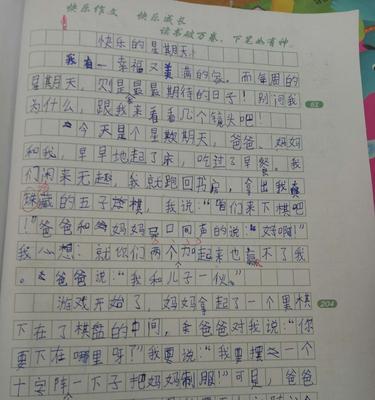 快乐作文 快乐成长
读书破万卷，下笔如有神
快乐的星期天
我有一幸福又美满的家。而每周的
星期天，则是最最期待的日子！别问我
为什么，跟我来看看几个镜头吧！
63
今天是个星期天，爸爸、妈妈
和我，早早地起了床，吃过了早餐。我
们闲来无趣，我就跑回书房，拿出我
珠藏的五子棋，我说：“咱们来下棋吧
！”爸爸和妈妈异口同声的说：“好啊！”
我心想：就你们两个加起来也赢不了我
。爸爸说：“我和儿子一伙。”
游戏开始了，妈妈拿起了一个黑棋
204
下在了棋盘的中间，爸爸对我说：“你
要下在哪里呀？”我说：“我要摆一个
十字阵一下子把妈妈制服！”可是，爸爸